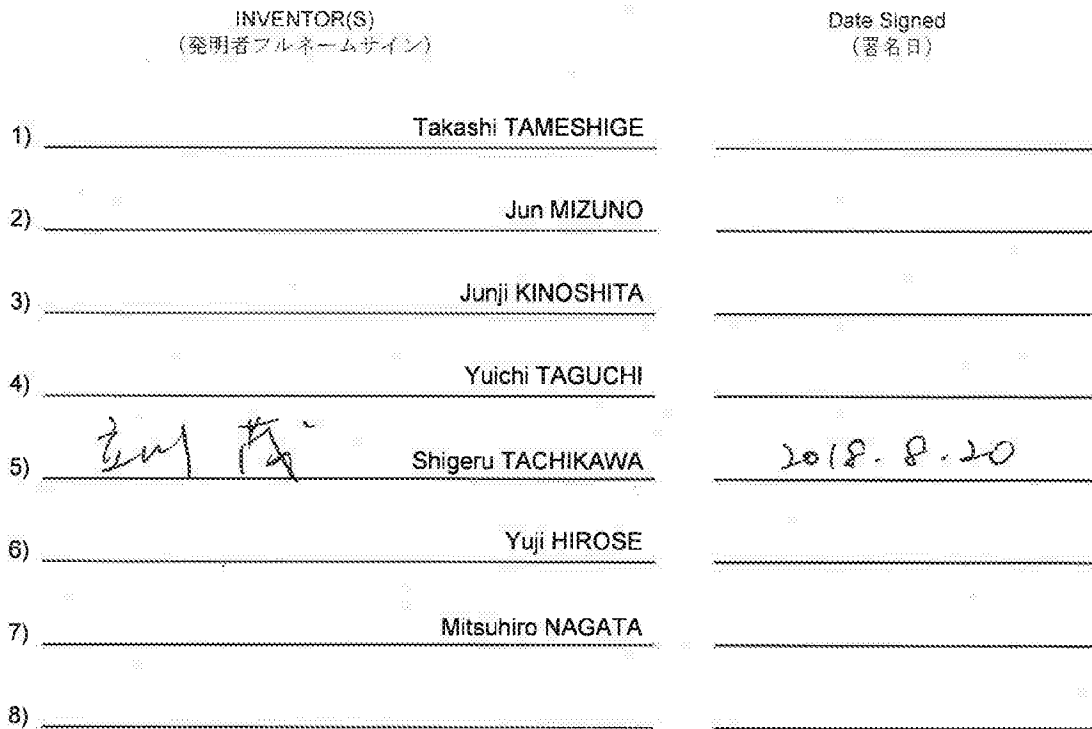 INVENTOR(S) Date Signed
(発明者フルネームサイン) (署名日)
1) Takashi TAMESHIGE
2) Jun MIZUNO
3) Junji KINOSHITA
4) Yuichi TAGUCHI
5) 立川 茂 Shigeru TACHIKAWA 2018.8.20
6) Yuji HIROSE
7) Mitsuhiro NAGATA
8)